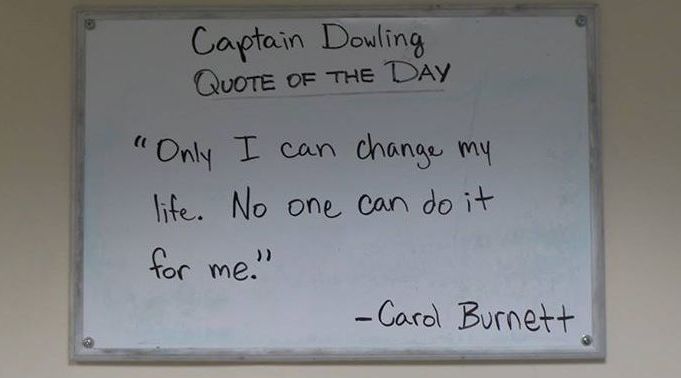 Captain Dowling
QUOTE OF THE DAY
"Only I can change my
life. No one can do it
for me."
-Carol Burnett